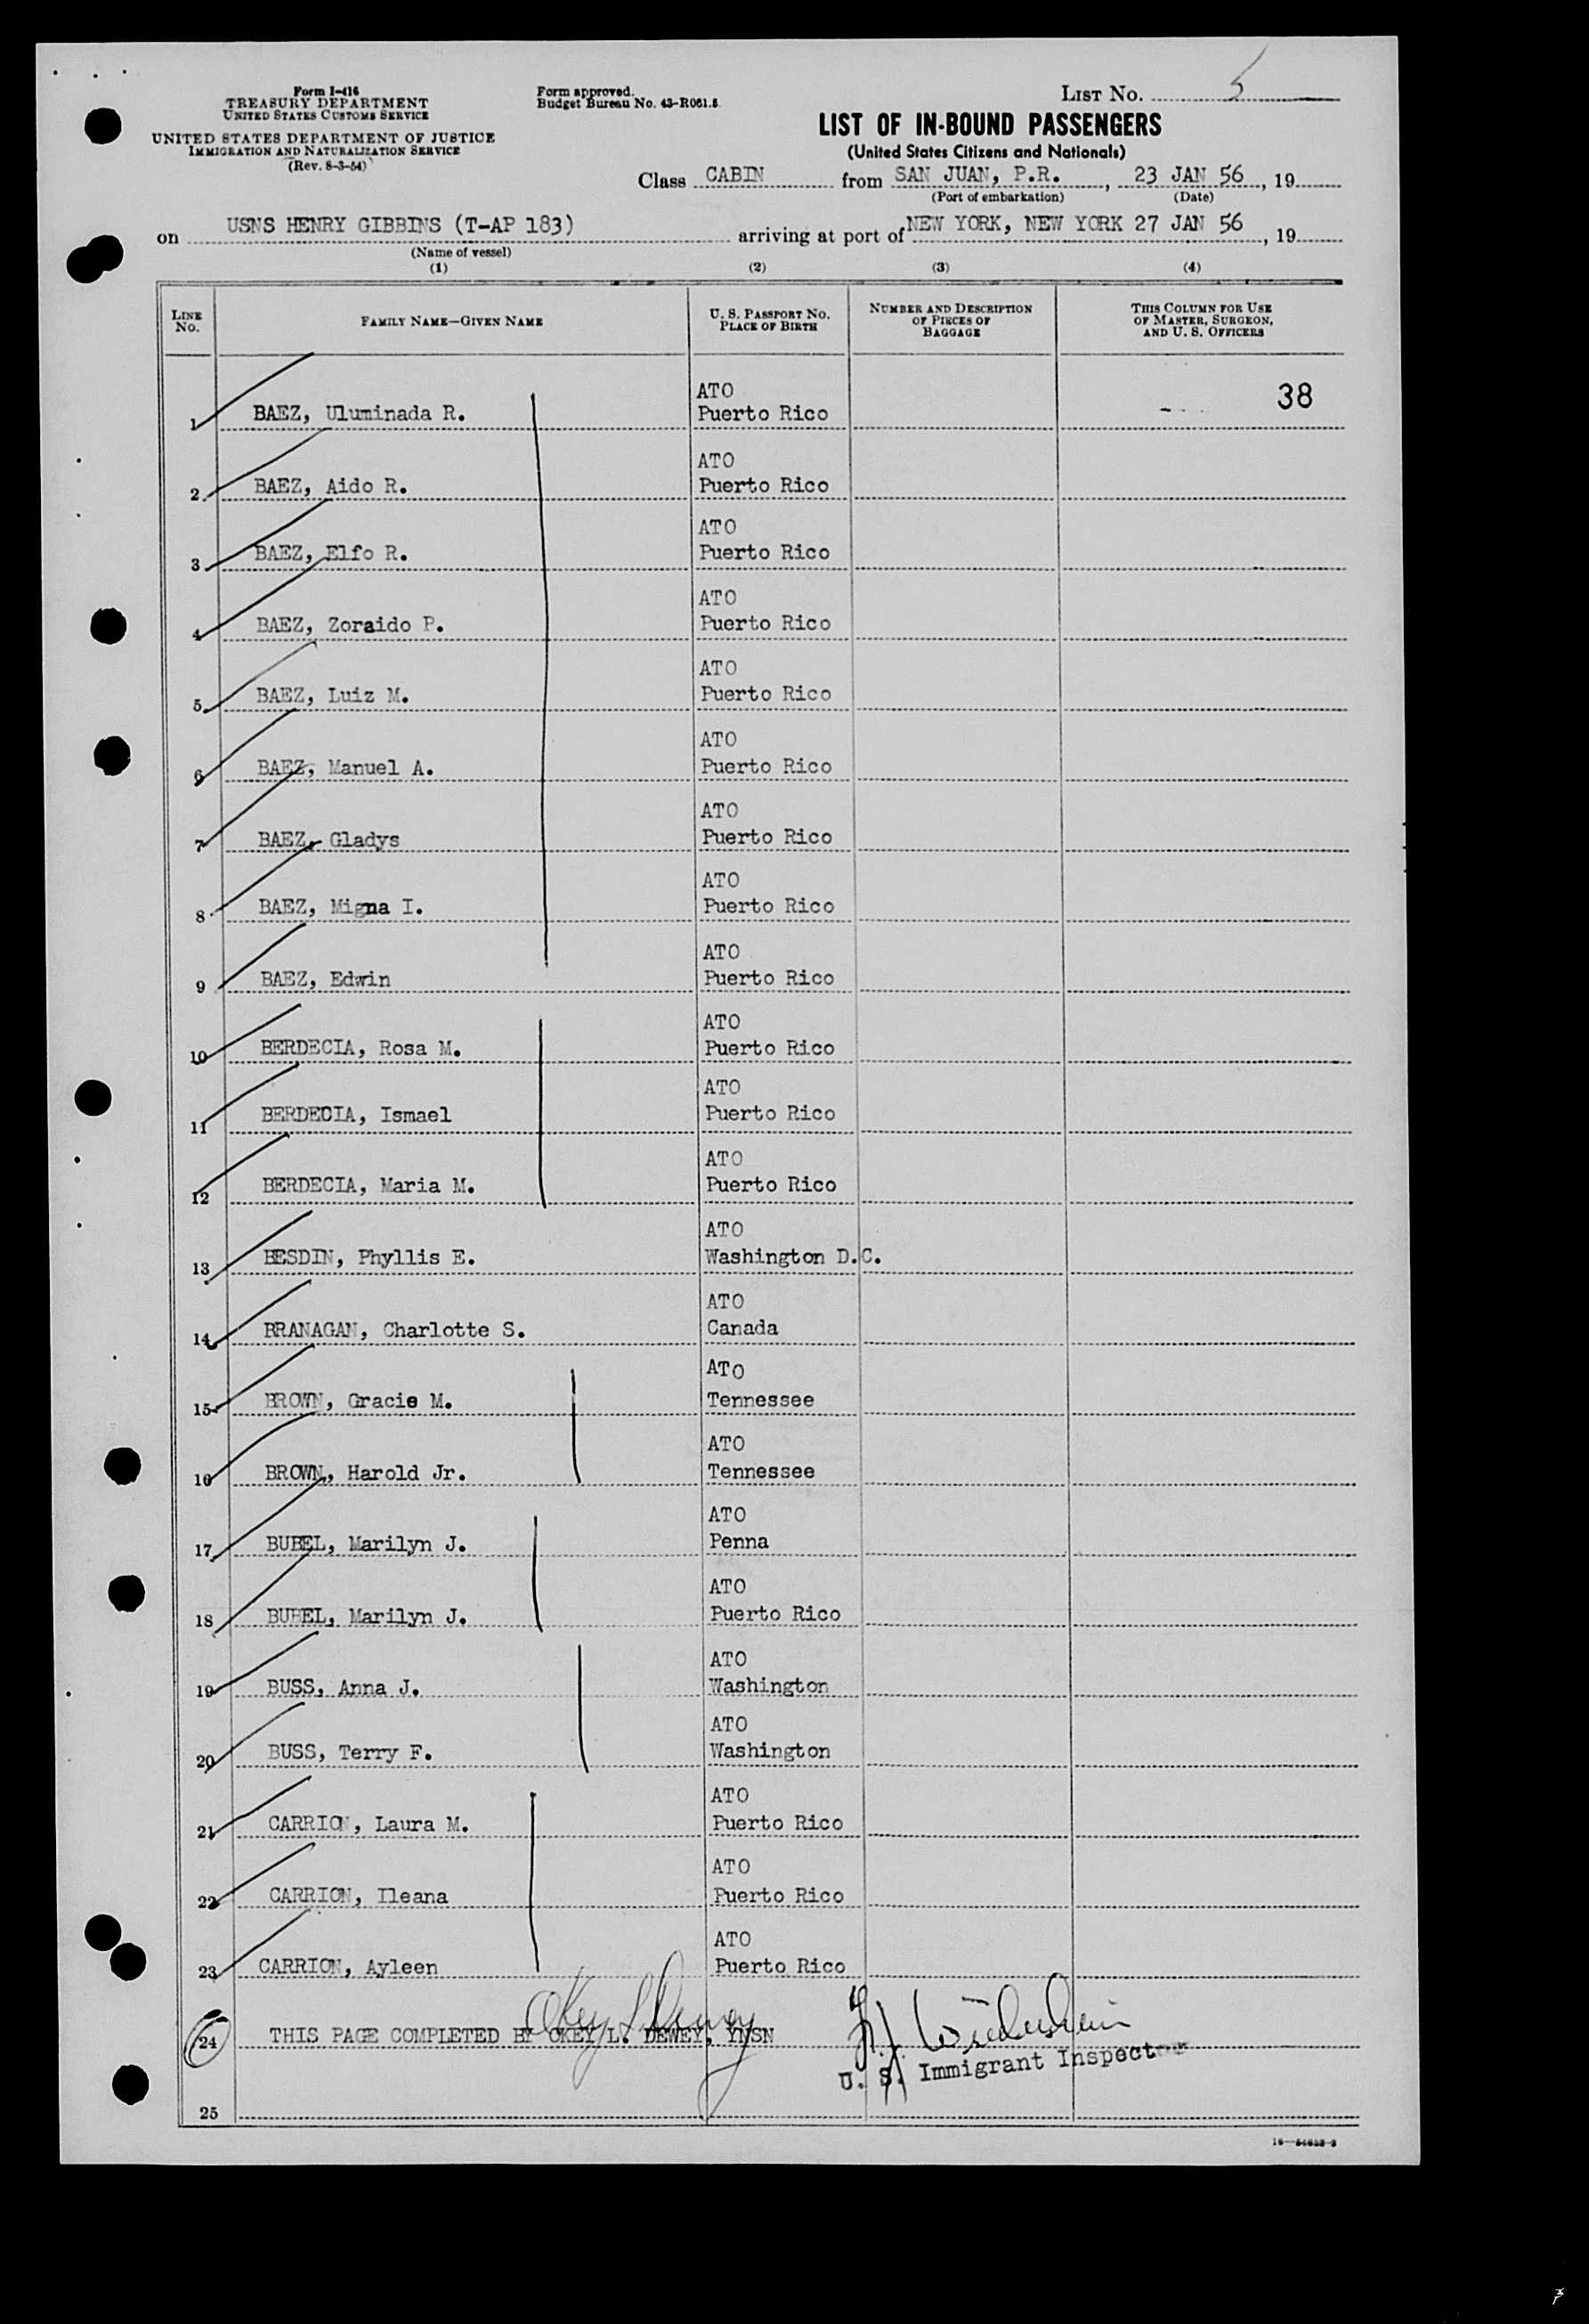 Form I-416
TREASURY DEPARTMENT
UNITED STATES CUSTOMS SERVICE
UNITED STATES DEPARTMENT OF JUSTICE
IMMIGRATION AND NATURALIZATION SERVICE
(Rev. 8-3-54)
Form approved.
Budget Bureau No. 43-R061.5.
LIST NO. 5
LIST OF IN-BOUND PASSENGERS
(United States Citizens and Nationals)
Class CABIN from SAN JUAN, P.R., 23 JAN 56, 19
(Port of embarkation) (Date)
on USNS HENRY GIBBINS (T-AP 183) arriving at port of NEW YORK, NEW YORK 27 JAN 56, 19
(Name of vessel)
(1) (2) (3) (4)
LINE NO. FAMILY NAME—GIVEN NAME U. S. PASSPORT NO. PLACE OF BIRTH NUMBER AND DESCRIPTION OF PIECES OF BAGGAGE THIS COLUMN FOR USE OF MASTER, SURGEON, AND U. S. OFFICERS
ATO 38
1 BAEZ, Uluminada R. Puerto Rico
ATO
2 BAEZ, Aido R. Puerto Rico
ATO
3 BAEZ, Elfo R. Puerto Rico
ATO
4 BAEZ, Zoraido P. Puerto Rico
ATO
5 BAEZ, Luiz M. Puerto Rico
ATO
6 BAEZ, Manuel A. Puerto Rico
ATO
7 BAEZ, Gladys Puerto Rico
ATO
8 BAEZ, Migna I. Puerto Rico
ATO
9 BAEZ, Edwin Puerto Rico
ATO
10 BERDECIA, Rosa M. Puerto Rico
ATO
11 BERDECIA, Ismael Puerto Rico
ATO
12 BERDECIA, Maria M. Puerto Rico
ATO
13 BESDIN, Phyllis E. Washington D.C.
ATO
14 BRANAGAN, Charlotte S. Canada
ATO
15 BROWN, Gracie M. Tennessee
ATO
16 BROWN, Harold Jr. Tennessee
ATO
17 BUBEL, Marilyn J. Penna
ATO
18 BUBEL, Marilyn J. Puerto Rico
ATO
19 BUSS, Anna J. Washington
ATO
20 BUSS, Terry F. Washington
ATO
21 CARRION, Laura M. Puerto Rico
ATO
22 CARRION, Ileana Puerto Rico
ATO
23 CARRION, Ayleen Puerto Rico
Okey L Dewey
24 THIS PAGE COMPLETED BY OKEY L. DEWEY, YNSN
U. S. Immigrant Inspector
25